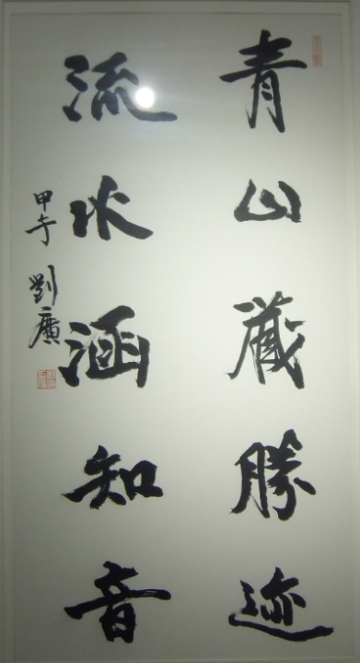 青山藏勝迹
流水涵知音
甲午 劉廣